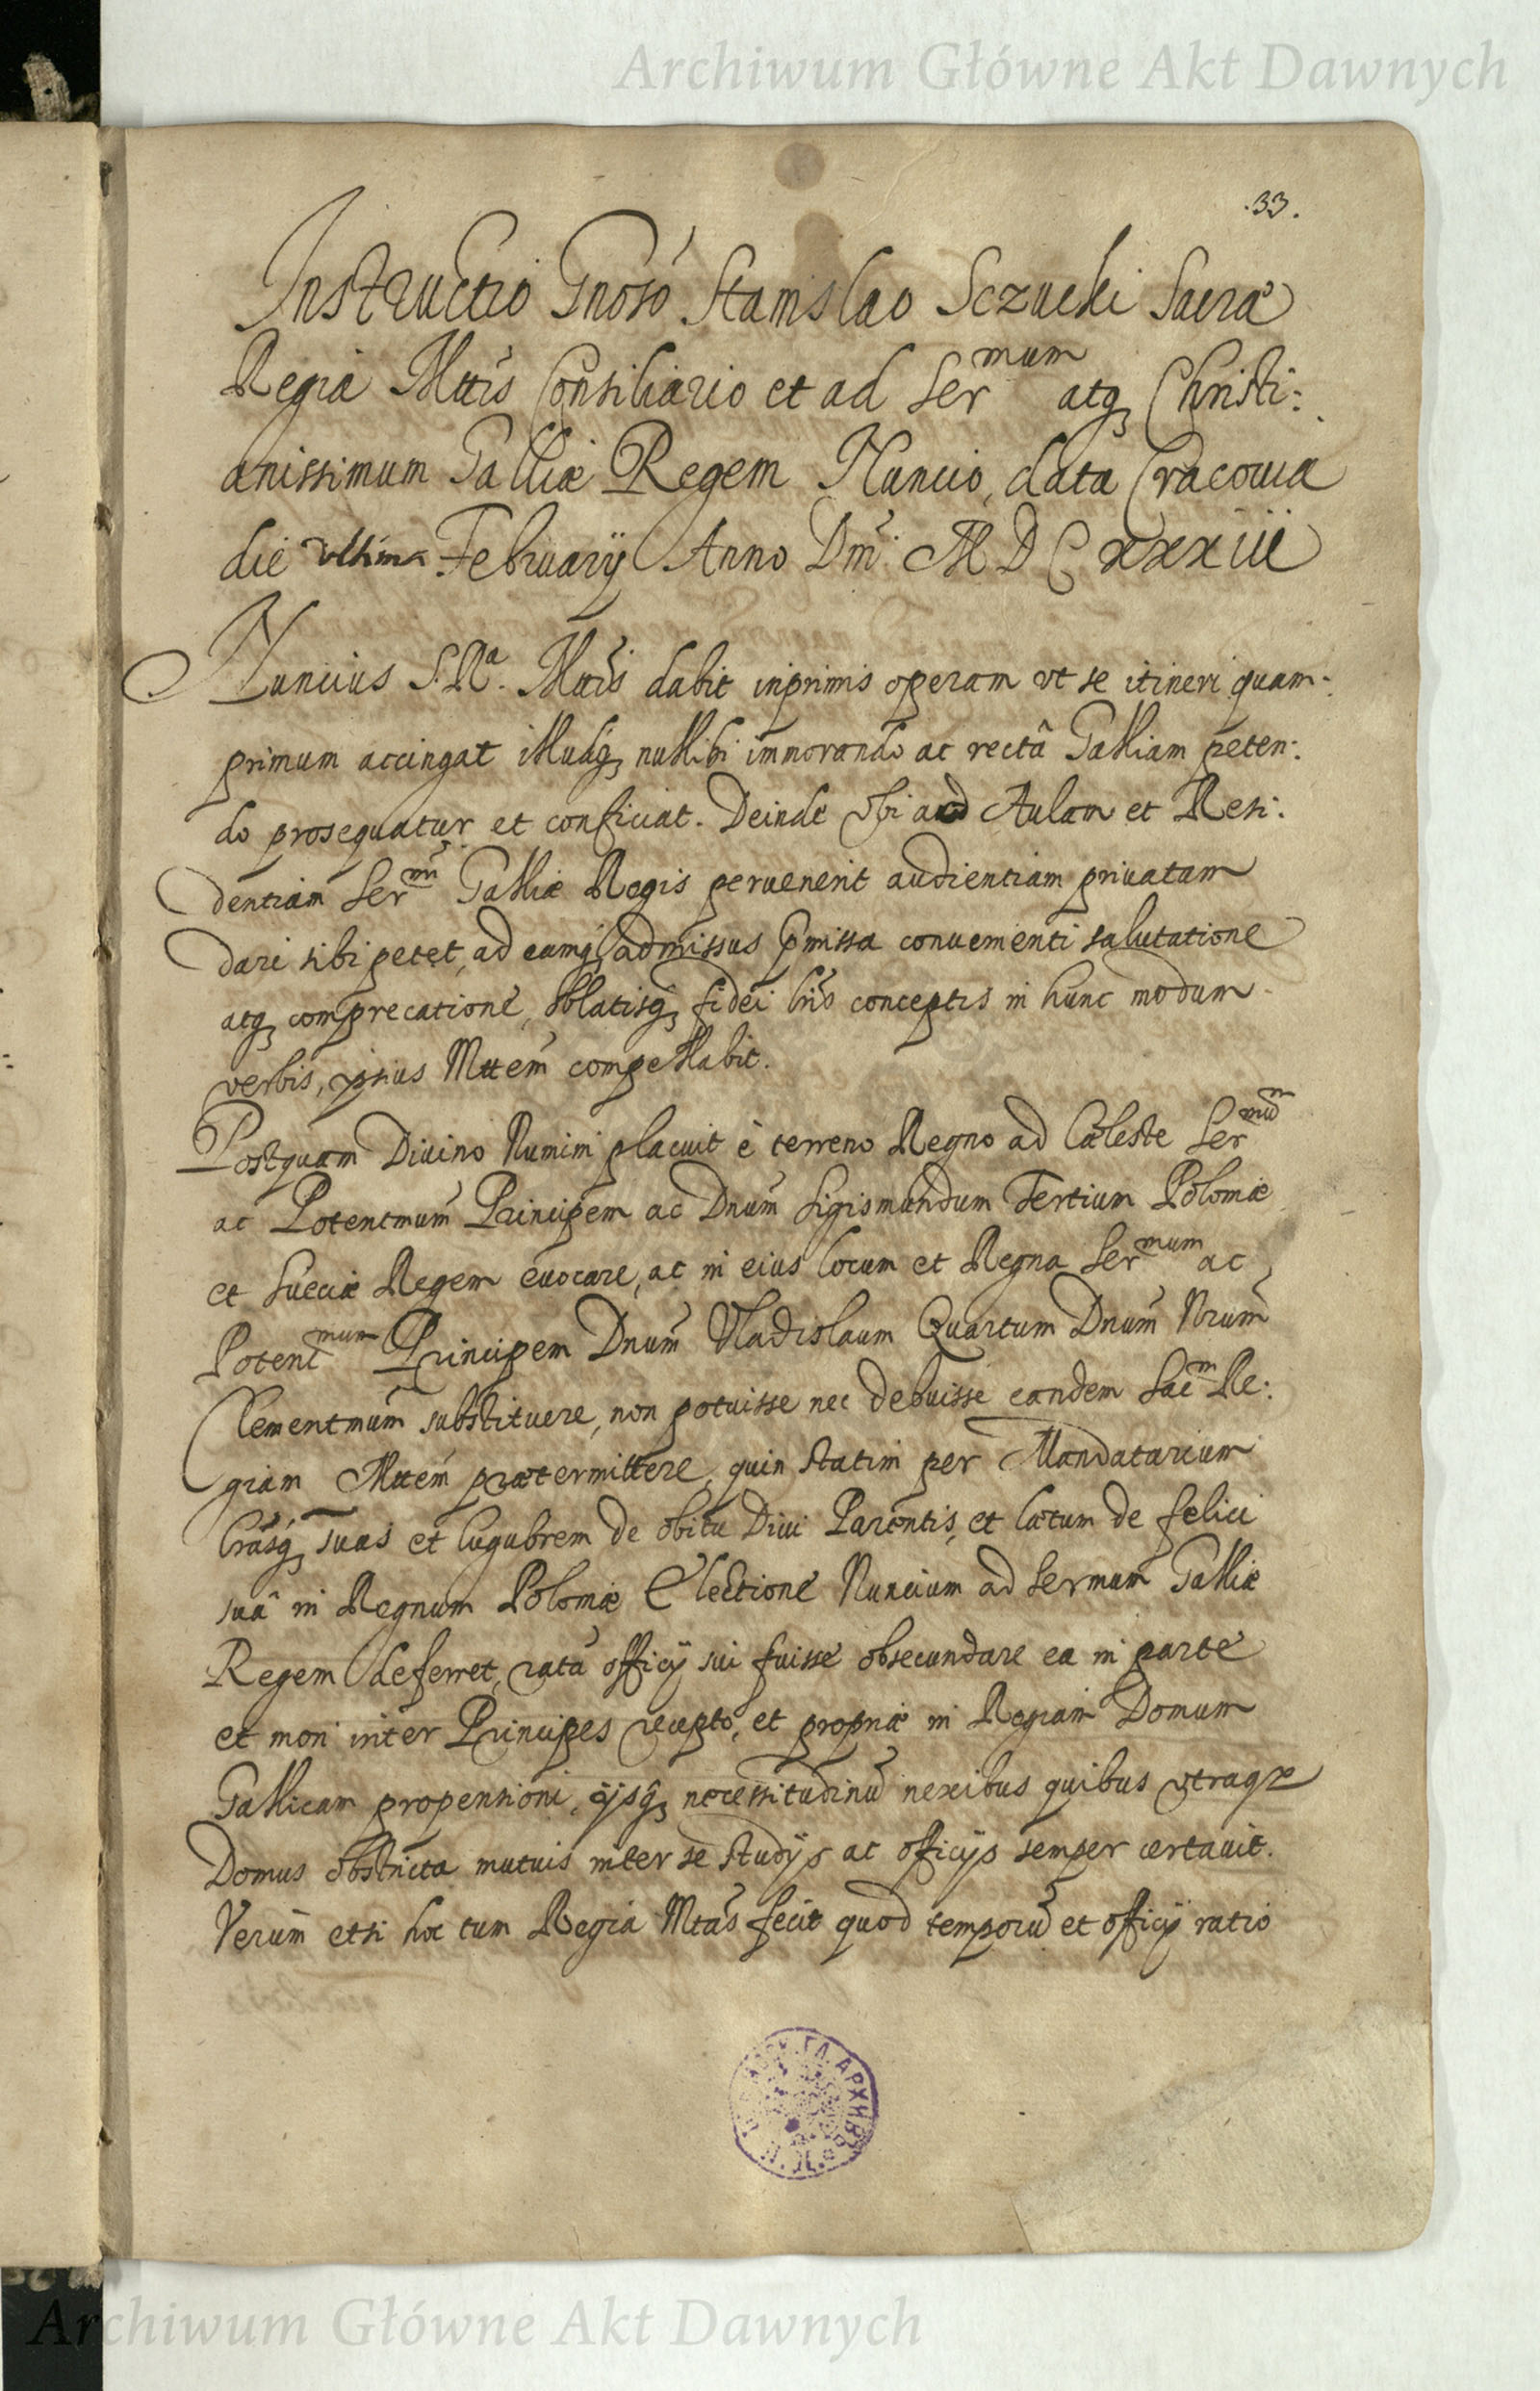 Archiwum Główne Akt Dawnych
.33.
Instructio Gnoso Stanislao Sczucki Sacræ
Regiæ Mttis Consiliario et ad Ser^mum atq Christi:
anissimum Galliæ Regem Nuncio, data Cracouia
die vltima Februarij Anno Dni. MDCxxxiii
Nuncius S. Rᵃ. Mttis dabit inprimis operam vt se itineri quam:
primum accingat illudq nullibi immorando ac rectâ Galliam peten:
do prosequatur et conficiat. Deinde vbi ad Aulam et Resi:
dentiam Ser^mi Galliæ Regis peruenerit audientiam priuatam
dari sibi petet, ad eamq admissus pmissa conuenienti salutatione
atq comprecatione, oblatisq fidei lris conceptis in hunc modum
verbis, ipsius Mttem compellabit.
Postquam Diuino Numini placuit è terreno Regno ad Cæleste Ser^mum
ac Potentmum Principem ac Dnum Sigismundum Tertium Poloniæ
et Sueciæ Regem euocare, ac in eius locum et Regna Ser^mum ac
Potent^mum Principem Dnum Vladislaum Quartum Dnum Nrum
Clementmum substituere, non potuisse nec debuisse eandem Sac^m Re:
giam Mttem prætermittere, quin statim per Mandatarium
lrasq suas et lugubrem de obitu Diui Parentis, et lætum de felici
suâ in Regnum Poloniæ Electione Nuncium ad Sermum Galliæ
Regem deferret, rata officij sui fuisse obsecundare ea in parte
et mori inter Principes recepto, et propriæ in Regiam Domum
Gallicam propensioni, ijsq necessitudinũ nexibus quibus vtraqz
Domus obstricta mutuis inter se studijs ac officijs semper certauit.
Verum etsi hoc tum Regia Mtas fecit quod temporũ et officij ratio
Archiwum Główne Akt Dawnych